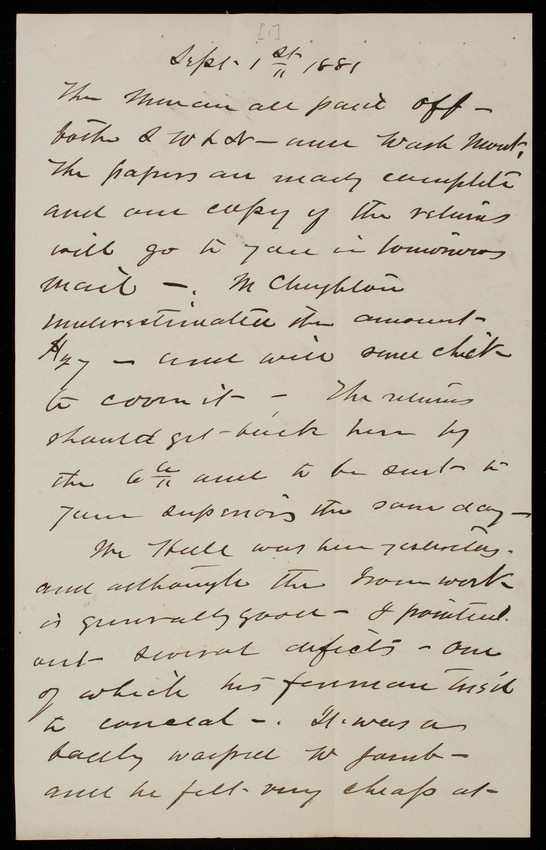 [1]
Sept. 1st 1881
The men are all paid off -
both S W & N - and Wash Mont.
The papers are nearly complete
and one copy of the returns
will go to you in tomorrows
mail -. McClughton
underestimated the amount
- and will send check
to cover it - The returns
should get back here by
the 6th and to be sent to
your superiors the same day -
Mr Hull was here yesterday.
and although the Iron work
is generally good - I pointed
out several defects - One
of which his foreman tried
to conceal -. It was a
badly warped W jamb -
and he felt very cheap at